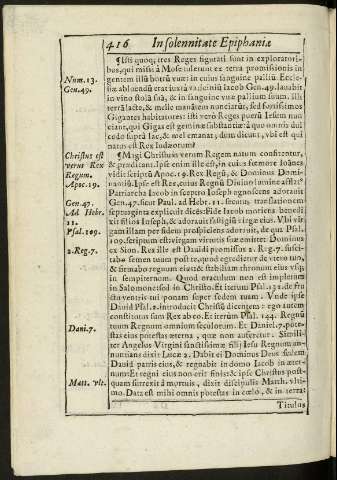 416 In solennitate Epiphaniæ
¶ Isti quoq; tres Reges figurati sunt in exploratori-
bus, qui missi à Mose tulerunt ex terra promissionis in
Num. 13. gentem illū botrū vuæ: in cuius sanguine palliū Eccle-
Gen. 49. siæ abluendū erat iuxtà vaticiniū Iacob Gen. 49. lauabit
in vino stolā suā, & in sanguine vuæ pallium suum. illi
terrā lacte, & melle manātem nunciarūt, sed fortissimos
Gigantes habitatores: isti verò Reges puerū Iesum nun
ciant, qui Gigas est geminæ substantiæ: à quo omnis dul
cedo suprà lac, & mel emanat, dum dicunt, vbi est qui
natus est Rex Iudæorum?
Christus est ¶ Magi Christum verum Regem natum confitentur,
verus Rex & prædicant. Ipse enim ille est, in cuius femore Ioānes
Regum. vidit scriptū Apoc. 19. Rex Regū, & Dominus Domi-
Apoc. 19. nantiū. Ipse est Rex, cuius Regnū Diuino lumine afflat°
Patriarcha Iacob in sceptro Ioseph egnoscens adorauit
Gen. 47. Gen. 47. sicut Paul. ad Hebr. 11. secutus translationem
Ad Hebr. septuaginta explicuit dicēs: Fide Iacob moriens benedi
11. xit filios Ioseph, & adorauit fastigiū virgæ eius. Vbi vir
Psal. 109. gam illam per fidem prospiciens adorauit, de qua Psal.
109. scriptum est: virgam virtutis suæ emittet Dominus
2. Reg. 7. ex Sion. Rex ille est Dauidi promissus 2. Reg. 7. susci-
tabo semen tuum post te, quod egredietur de vtero tuo,
& firmabo regnum eius: & stabiliam thronum eius vsq;
in sempiternum. Quod oraculum non est impletum
in Salomone: sed in Christo. Et iterum Psal. 131. de fru
ctu ventris tui ponam super sedem tuam. Vnde ipse
Dauid Psal. 2. introducit Christū dicentem: ego autem
constitutus sum Rex ab eo. Et iterum Psal. 144. Regnū
tuum Regnum omnium seculorum. Et Daniel. 7. pote-
Dani. 7. stas eius potestas æterna, quæ non auferetur. Simili-
ter Angelus Virgini sanctissimæ filij Iesu Regnum an-
nuntians dixit Lucæ 2. Dabit ei Dominus Deus sedem
Dauid patris eius, & regnabit in domo Iacob in æter-
num: Et regni eius non erit finis: & ipse Christus post-
Matt. vlt. quam surrexit à mortuis, dixit discipulis Matth. vlti-
mo. Data est mihi omnis potestas in cœlo, & in terra:
Titulus